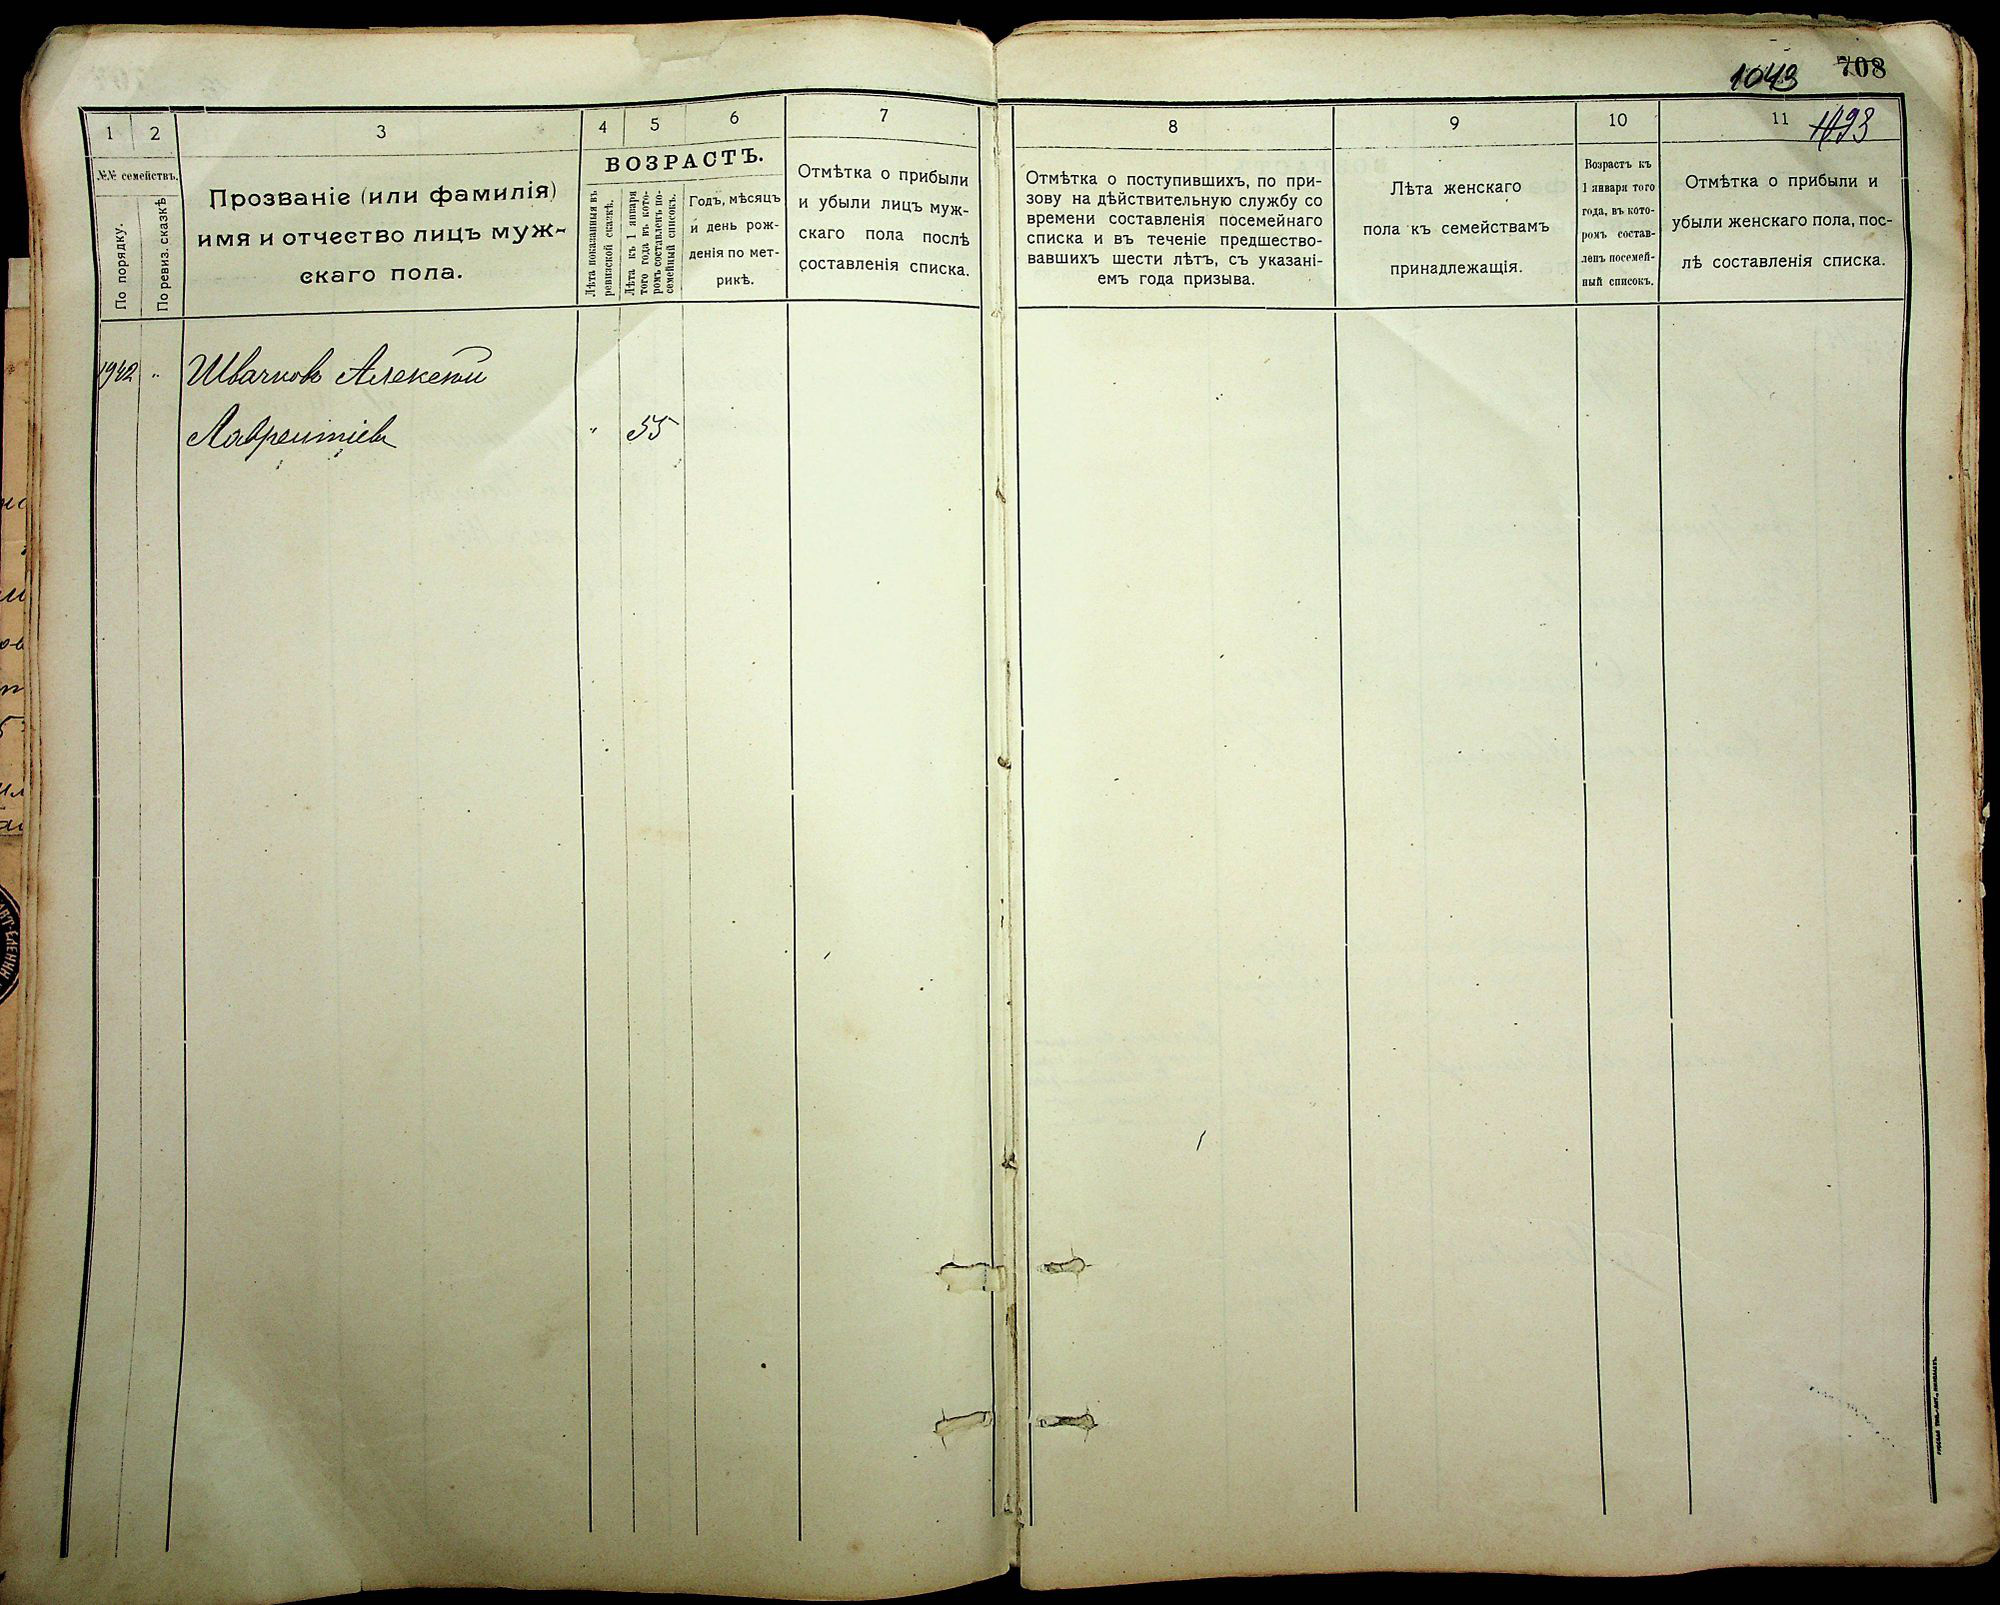 708
1043
1093
1
2
3
4
5
6
7
8
9
10
11
№№ семействъ.
По порядку.
По ревиз. сказкѣ
Прозваніе (или фамилія)
имя и отчество лицъ муж-
скаго пола.
ВОЗРАСТЪ.
Лѣта показанныя въ
ревизской сказкѣ.
Лѣта къ 1 января
того года въ кото-
ромъ составленъ по-
семейный списокъ.
Годъ, мѣсяцъ
и день рож-
денія по мет-
рикѣ.
Отмѣтка о прибыли
и убыли лицъ муж-
скаго пола послѣ
составленія списка.
Отмѣтка о поступившихъ, по при-
зову на дѣйствительную службу со
времени составленія посемейнаго
списка и въ теченіе предшество-
вавшихъ шести лѣтъ, съ указані-
емъ года призыва.
Лѣта женскаго
пола къ семействамъ
принадлежащія.
Возрастъ къ
1 января того
года, въ кото-
ромъ состав-
ленъ посемей-
ный списокъ.
Отмѣтка о прибыли и
убыли женскаго пола, пос-
лѣ составленія списка.
1942 " Швачковъ Алексѣй
Лаврентіевъ " 55